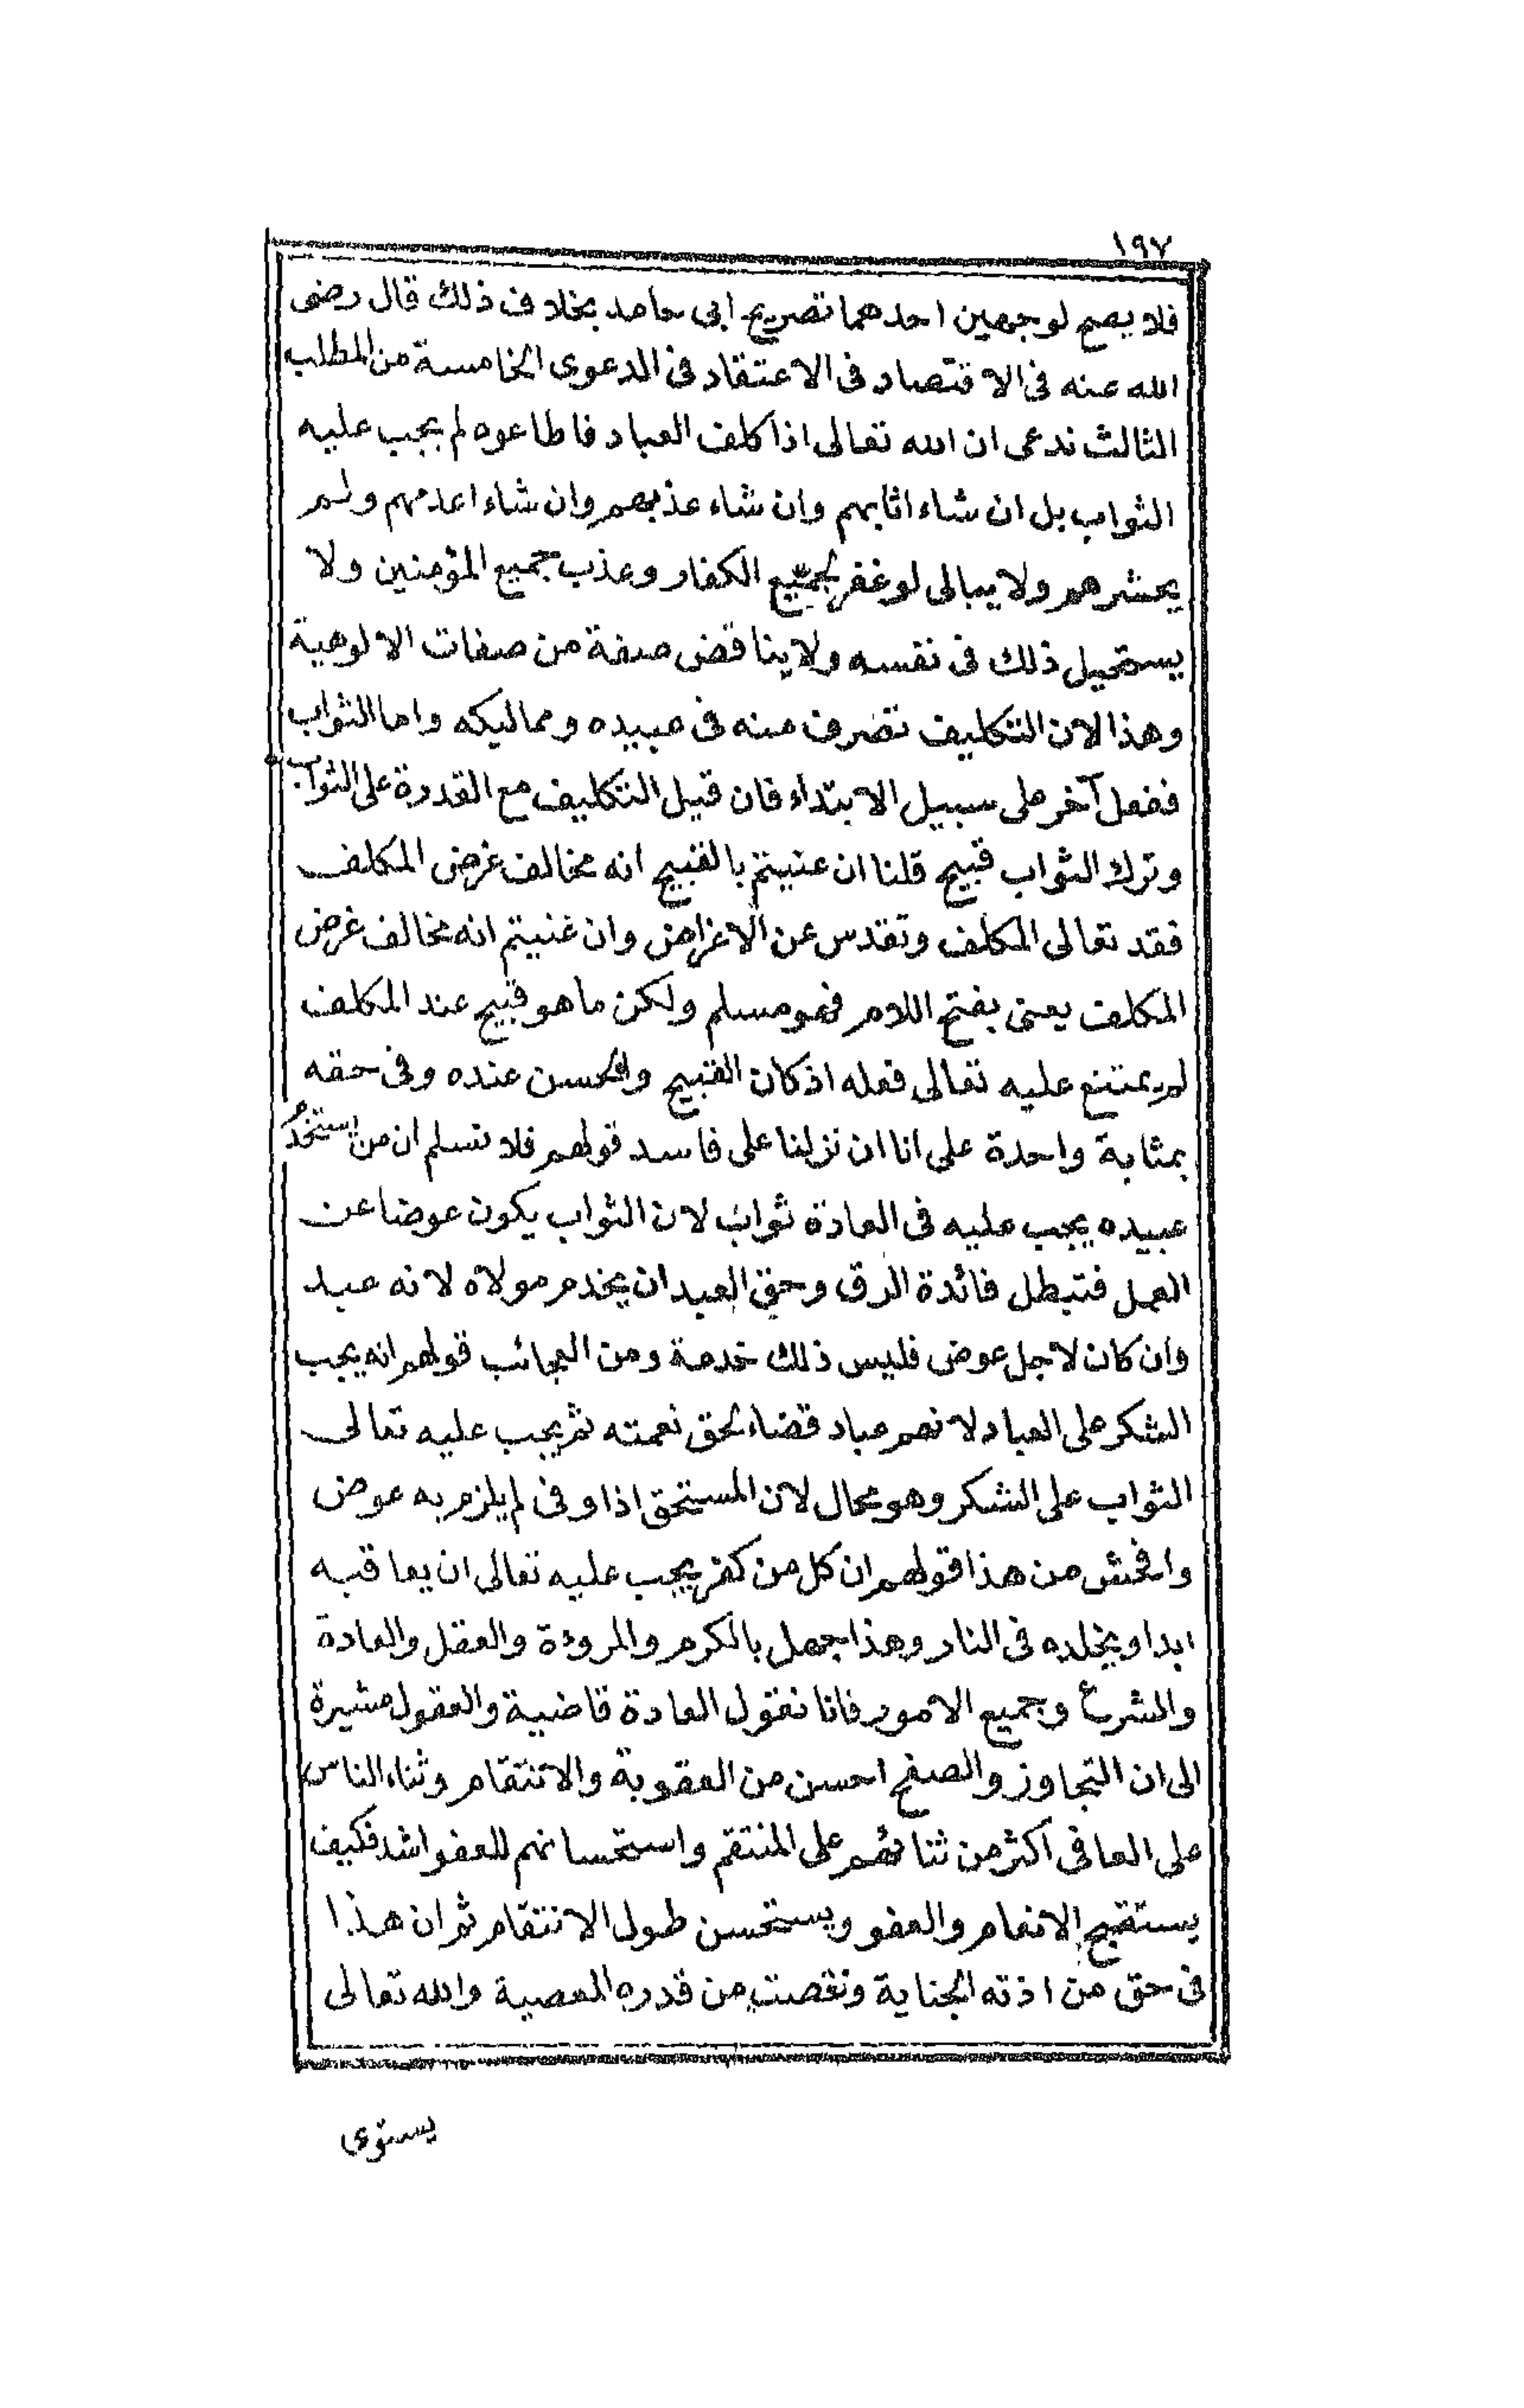 ١٩٧
فلا يصح لوجهين احدهما تصريح ابى حامد بخلاف ذلك قال رضى
الله عنه فى الاقتصاد فى الاعتقاد فى الدعوى الخامسة من المطلب
الثالث ندعى ان الله تعالى اذا كلف العباد فاطاعوه لم يجب عليه
الثواب بل ان شاء اثابهم وان شاء عذبهم وان شاء اعدمهم ولم
يحشرهم ولا يبالى لو غفر لجميع الكفار وعذب جميع المؤمنين ولا
يستحيل ذلك فى نفسه ولا يناقض صفة من صفات الالوهية
وهذا لان التكليف تصرف منه فى عبيده ومماليكه واما الثواب
ففعل آخر على سبيل الابتداء فان قيل التكليف مع القدرة على الثواب
وترك الثواب قبيح قلنا ان عنيتم بالقبيح انه مخالف غرض المكلف
فقد تعالى المكلف وتقدس عن الاغراض وان غنيتم انه مخالف غرض
المكلف يعنى بفتح اللام فهو مسلم ولكن ما هو قبيح عند المكلف
لم يمتنع عليه تعالى فعله اذ كان القبيح والحسن عنده وفى حقه
بمثابة واحدة على انا ان نزلنا على فاسد قولهم فلا نسلم ان من يستخدم
عبيده يجب عليه فى العادة ثواب لان الثواب يكون عوضا عن
العمل فتبطل فائدة الرق وحق العبد ان يخدم مولاه لانه عبد
وان كان لاجل عوض فليس ذلك خدمة ومن العجائب قولهم انه يجب
الشكر على العباد لانهم عباد قضاء لحق نعمته ثم يجب عليه تعالى
الثواب على الشكر وهو محال لان المستحق اذا وفى لم يلزم به عوض
وافحش من هذا قولهم ان كل من كفر يجب عليه تعالى ان يعاقبه
ابدا ويخلده فى النار وهذا جهل بالكرم والمروءة والعقل والعادة
والشرع وجميع الامور فانا نقول العادة قاضية والعقول مشيرة
الى ان التجاوز والصفح احسن من العقوبة والانتقام وثناء الناس
على العافى اكثر من ثنائهم على المنتقم واستحسانهم للعفو اشد فكيف
يستقبح الانعام والعفو ويستحسن طول الانتقام ثم ان هذا
فى حق من اذته الجناية ونقصت من قدره المعصية والله تعالى
يستوى